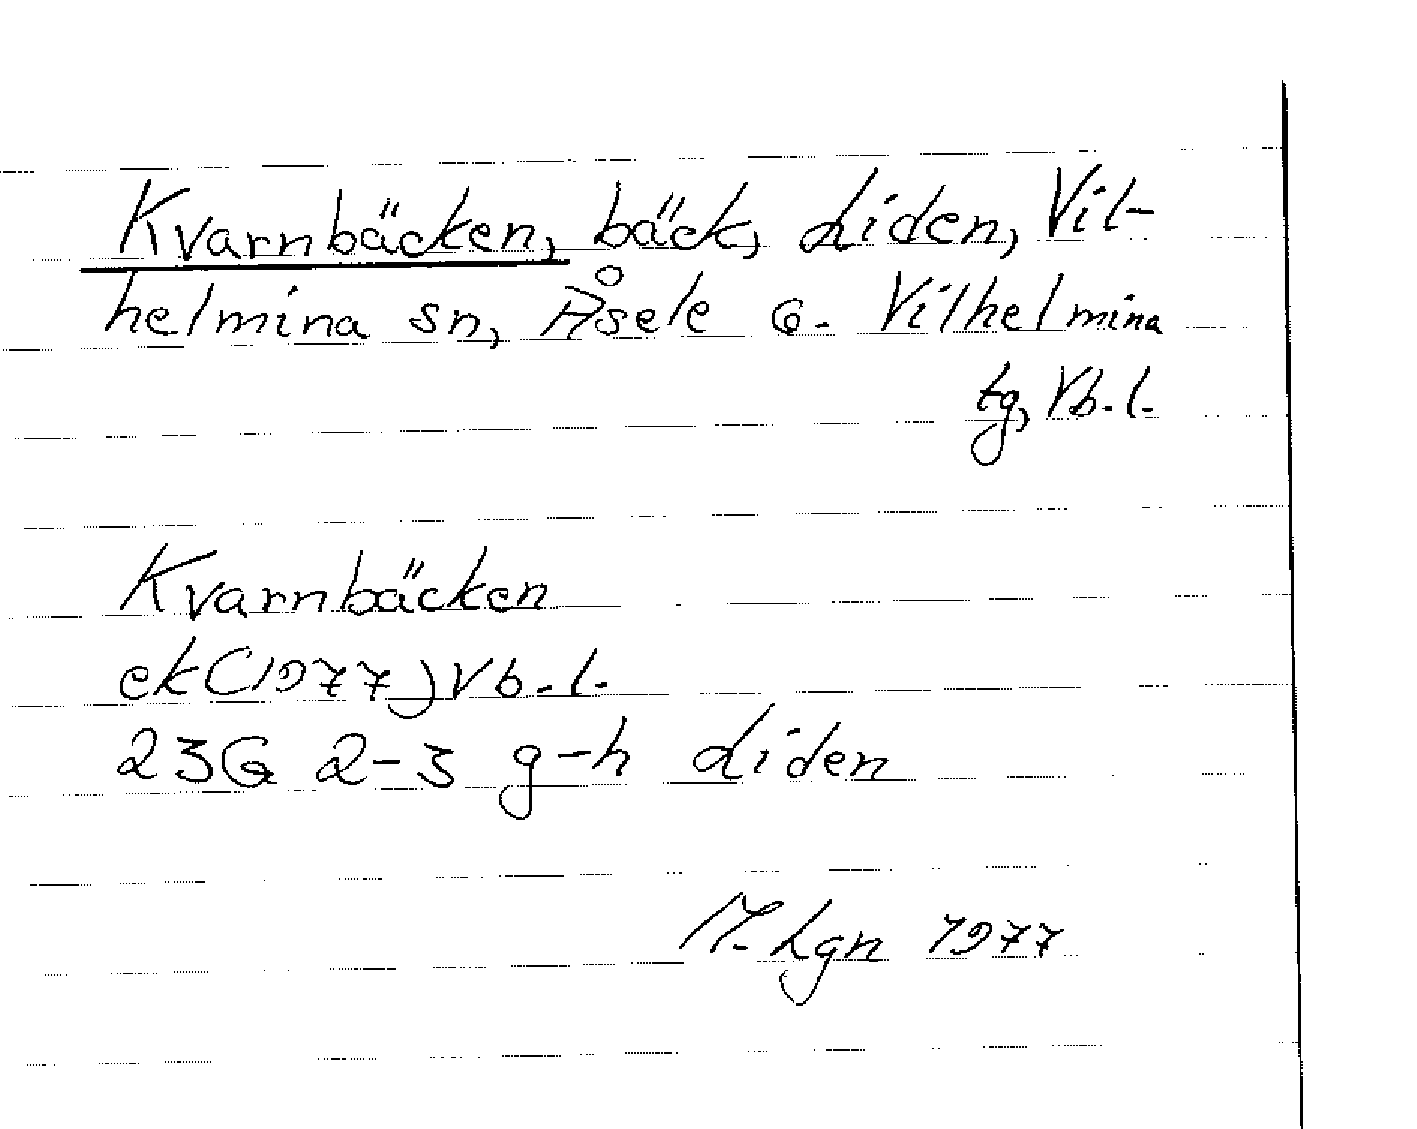 Kvarnbäcken, bäck, Liden, Vil-
helmina sn, Åsele
Vilhelmina
tg, Vb.l.
Kvarnbäcken
ek(1977)Vb.l.
23G 2-3 g-h Liden
M. Lgn 1977